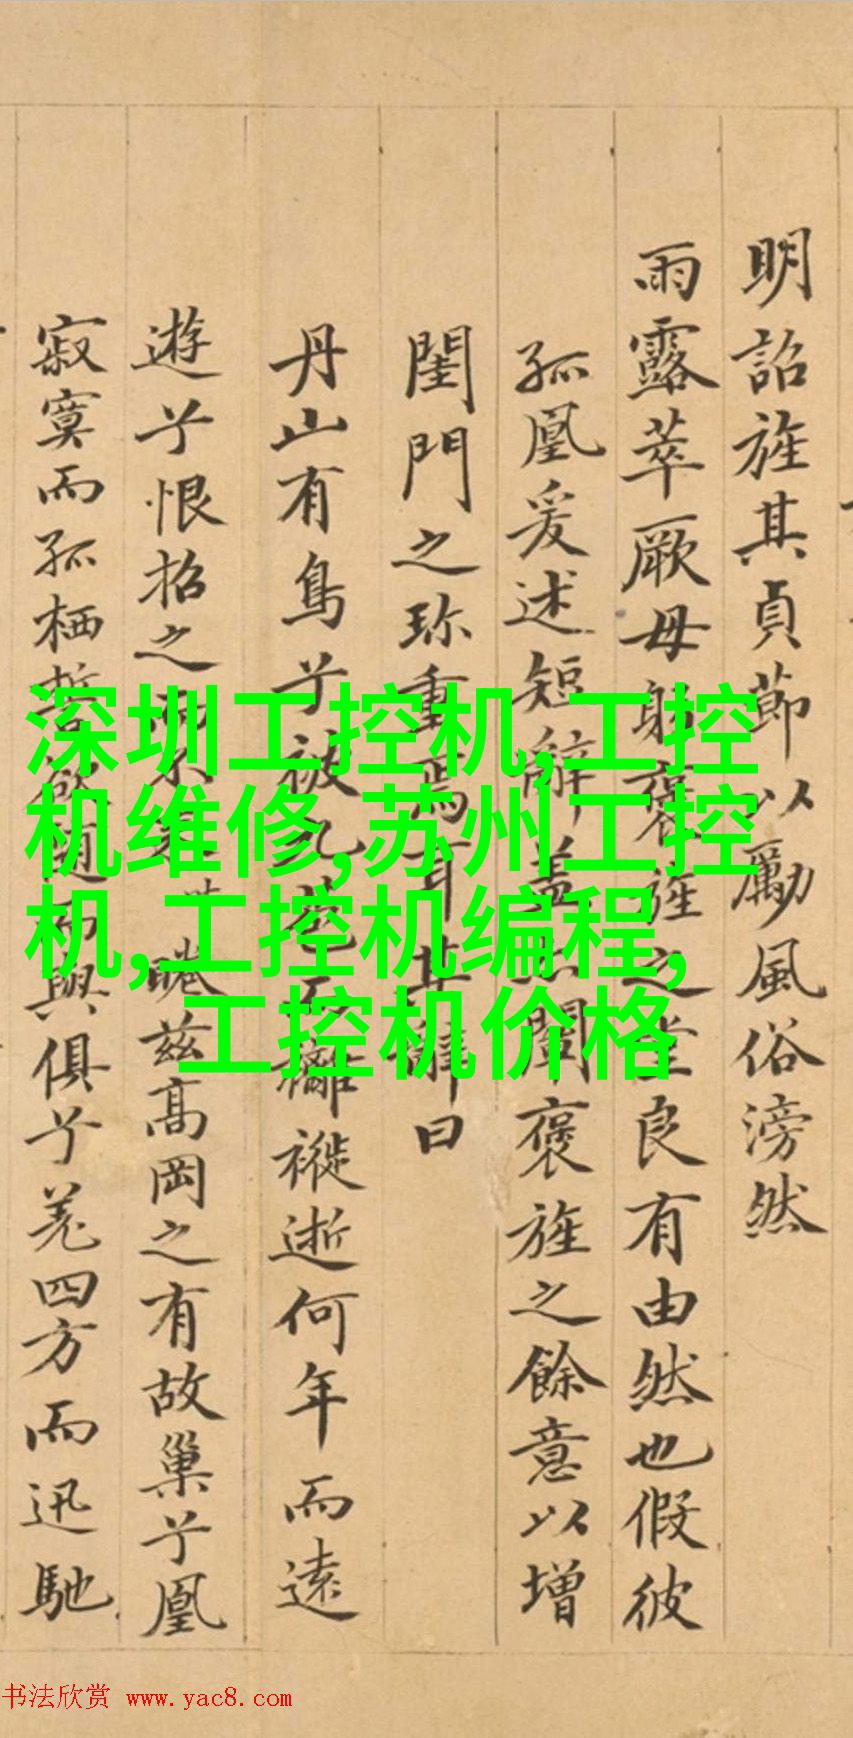 明詔旌其貞節以勵風俗滂然
雨露萃厥母躬褒旌之堂良有由然也假彼
孤凰爰述短辭蓋闡褒旌之餘意以增
閨門之珎重焉耳其辭曰
丹山有鳥兮被九苞而襹褷逝何年而遠
遊兮恨招之而不來睠茲高岡之有故巢兮凰
寂寞而孤栖誓欲随而與俱兮羌四方而迅馳
深圳工控机,工控
机维修,苏州工控
机,工控机编程,
工控机价格
书法欣赏 www.yac8.com